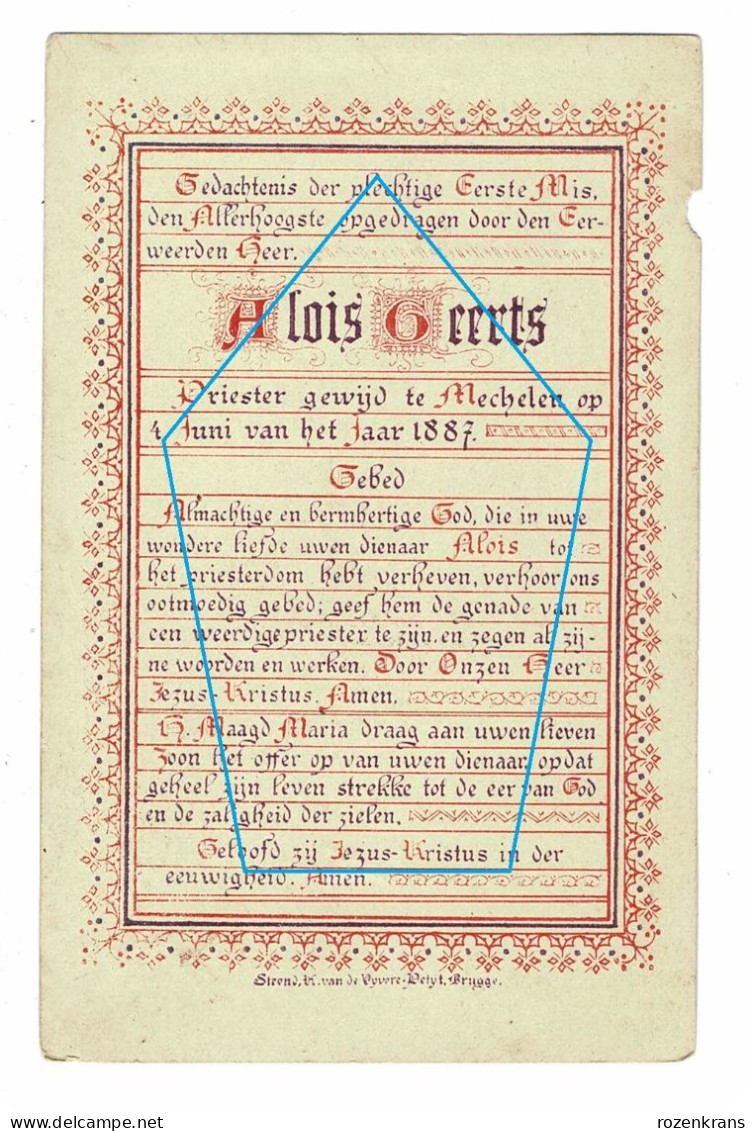 Gedachtenis der plechtige Eerste Mis,
den Allerhoogste opgedragen door den Eer-
weerden Heer.
Alois Geerts
Priester gewijd te Mechelen op
4 Juni van het Jaar 1887.
Gebed
Almachtige en bermhertige God, die in uwe
wondere liefde uwen dienaar Alois tot
het priesterdom hebt verheven, verhoor ons
ootmoedig gebed; geef hem de genade van
een weerdige priester te zijn, en zegen al zij-
ne woorden en werken. Door Onzen Heer
Jezus-Kristus. Amen.
H. Maagd Maria draag aan uwen lieven
Zoon het offer op van uwen dienaar, opdat
geheel zijn leven strekke tot de eer van God
en de zaligheid der zielen.
Geloofd zij Jezus-Kristus in der
eeuwigheid. Amen.
Steend. K. van de Vyvere-Petyt, Brugge.
rozenkrans